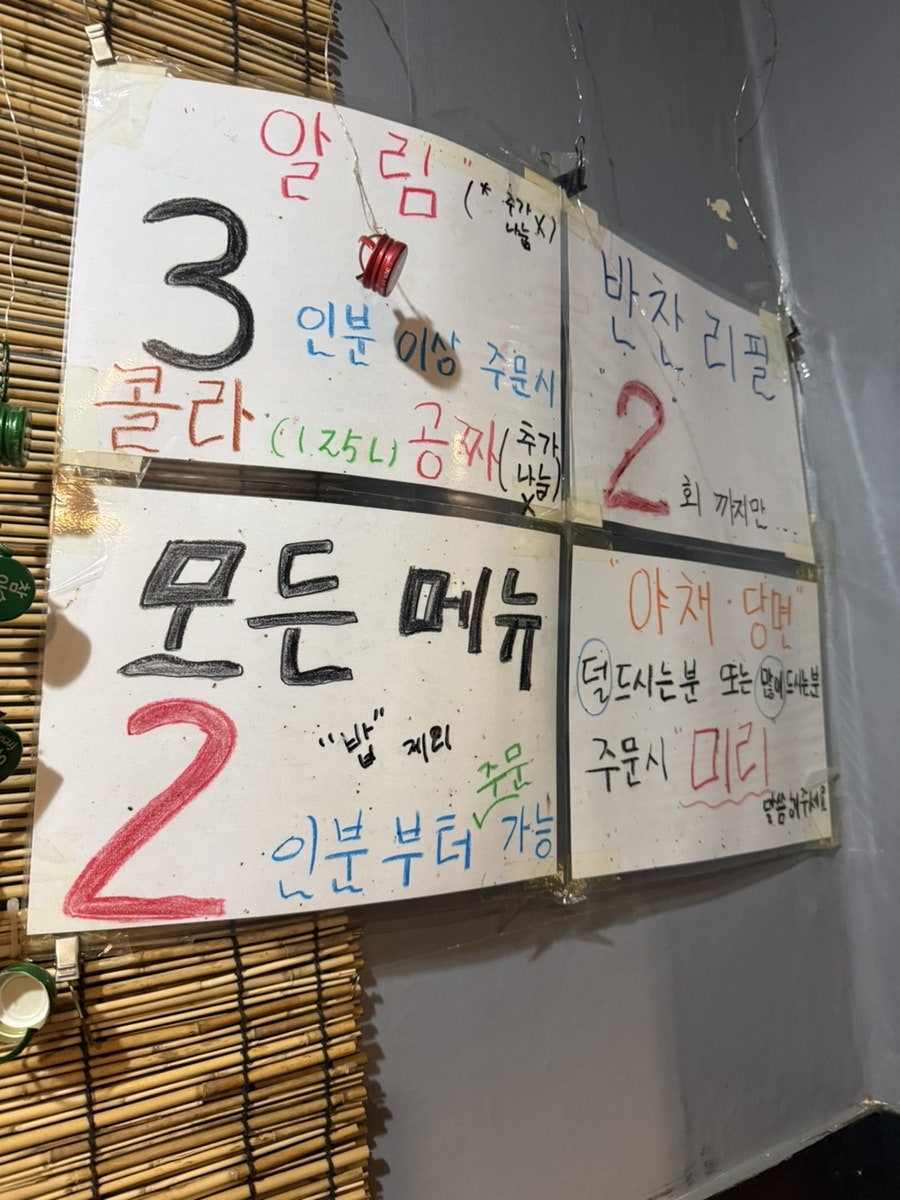 "알림"
(* 추가
나눔 X)
3
인분 이상 주문시
콜라 (1.25L) 공짜 (추가
나눔)
X
반찬 리필
2
회 까지만...
모든 메뉴
"밥" 제외
2
주문
인분부터 가능
"야채·당면"
덜드시는분 또는 많이드시는분
주문시 "미리
말씀해주세요